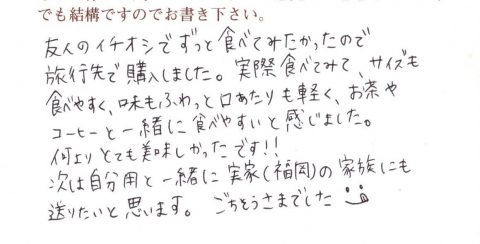 でも結構ですのでお書き下さい。
友人のイチオシでずっと食べてみたかったので
旅行先で購入しました。実際食べてみて、サイズも
食べやすく、味もふわっと口あたりも軽く、お茶や
コーヒーと一緒に食べやすいと感じました。
何よりとても美味しかったです!!
次は自分用と一緒に実家(福岡)の家族にも
送りたいと思います。ごちそうさまでした